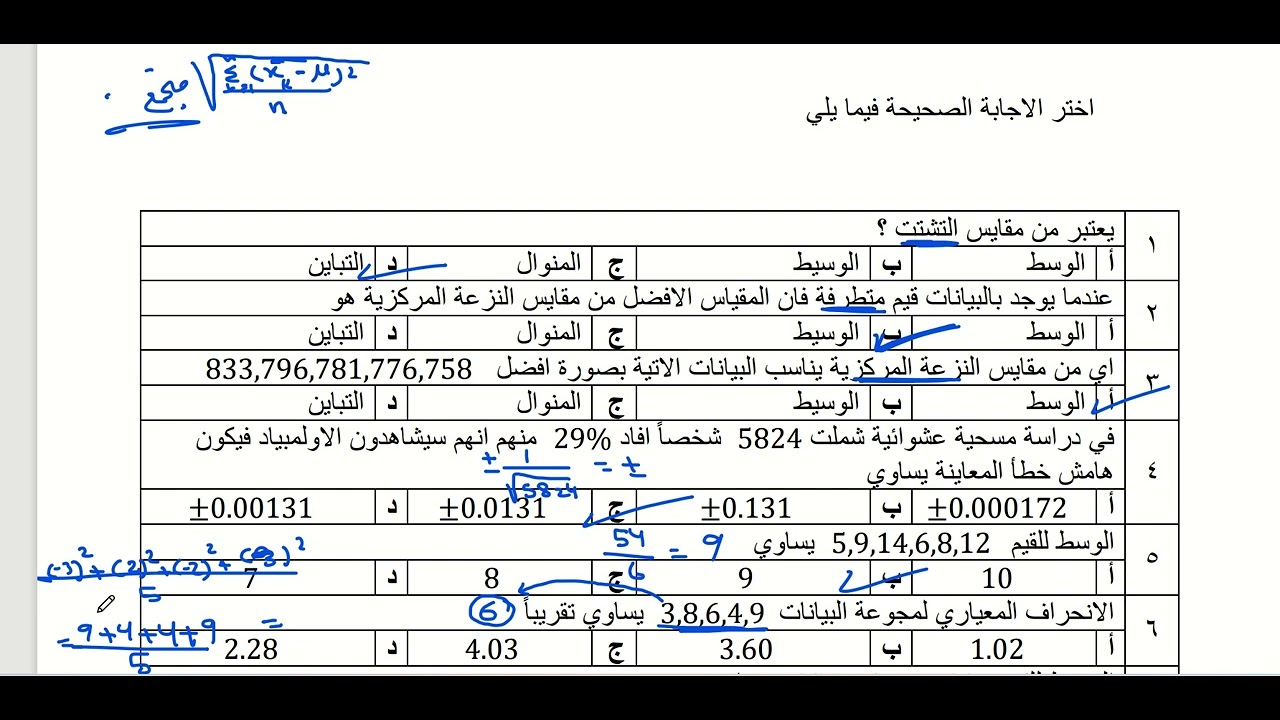 مجتمع √ Σ (x_k - μ)² / n
k=1
اختر الاجابة الصحيحة فيما يلي
١ يعتبر من مقايس التشتت ؟
أ الوسط ب الوسيط ج المنوال د التباين
٢ عندما يوجد بالبيانات قيم متطرفة فان المقياس الافضل من مقايس النزعة المركزية هو
أ الوسط ب الوسيط ج المنوال د التباين
٣ اي من مقايس النزعة المركزية يناسب البيانات الاتية بصورة افضل 833,796,781,776,758
أ الوسط ب الوسيط ج المنوال د التباين
٤ في دراسة مسحية عشوائية شملت 5824 شخصاً افاد %29 منهم انهم سيشاهدون الاولمبياد فيكون
هامش خطأ المعاينة يساوي
± 1/√5824 = ±
أ ±0.000172 ب ±0.131 ج ±0.0131 د ±0.00131
٥ الوسط للقيم 5,9,14,6,8,12 يساوي
54/6 = 9
أ 10 ب 9 ج 8 د 7
(-3)² + (2)² + (-2)² + (3)² / 5
٦ الانحراف المعياري لمجموعة البيانات 3,8,6,4,9 يساوي تقريباً
6
= 9+4+4+9 / 5 =
أ 1.02 ب 3.60 ج 4.03 د 2.28